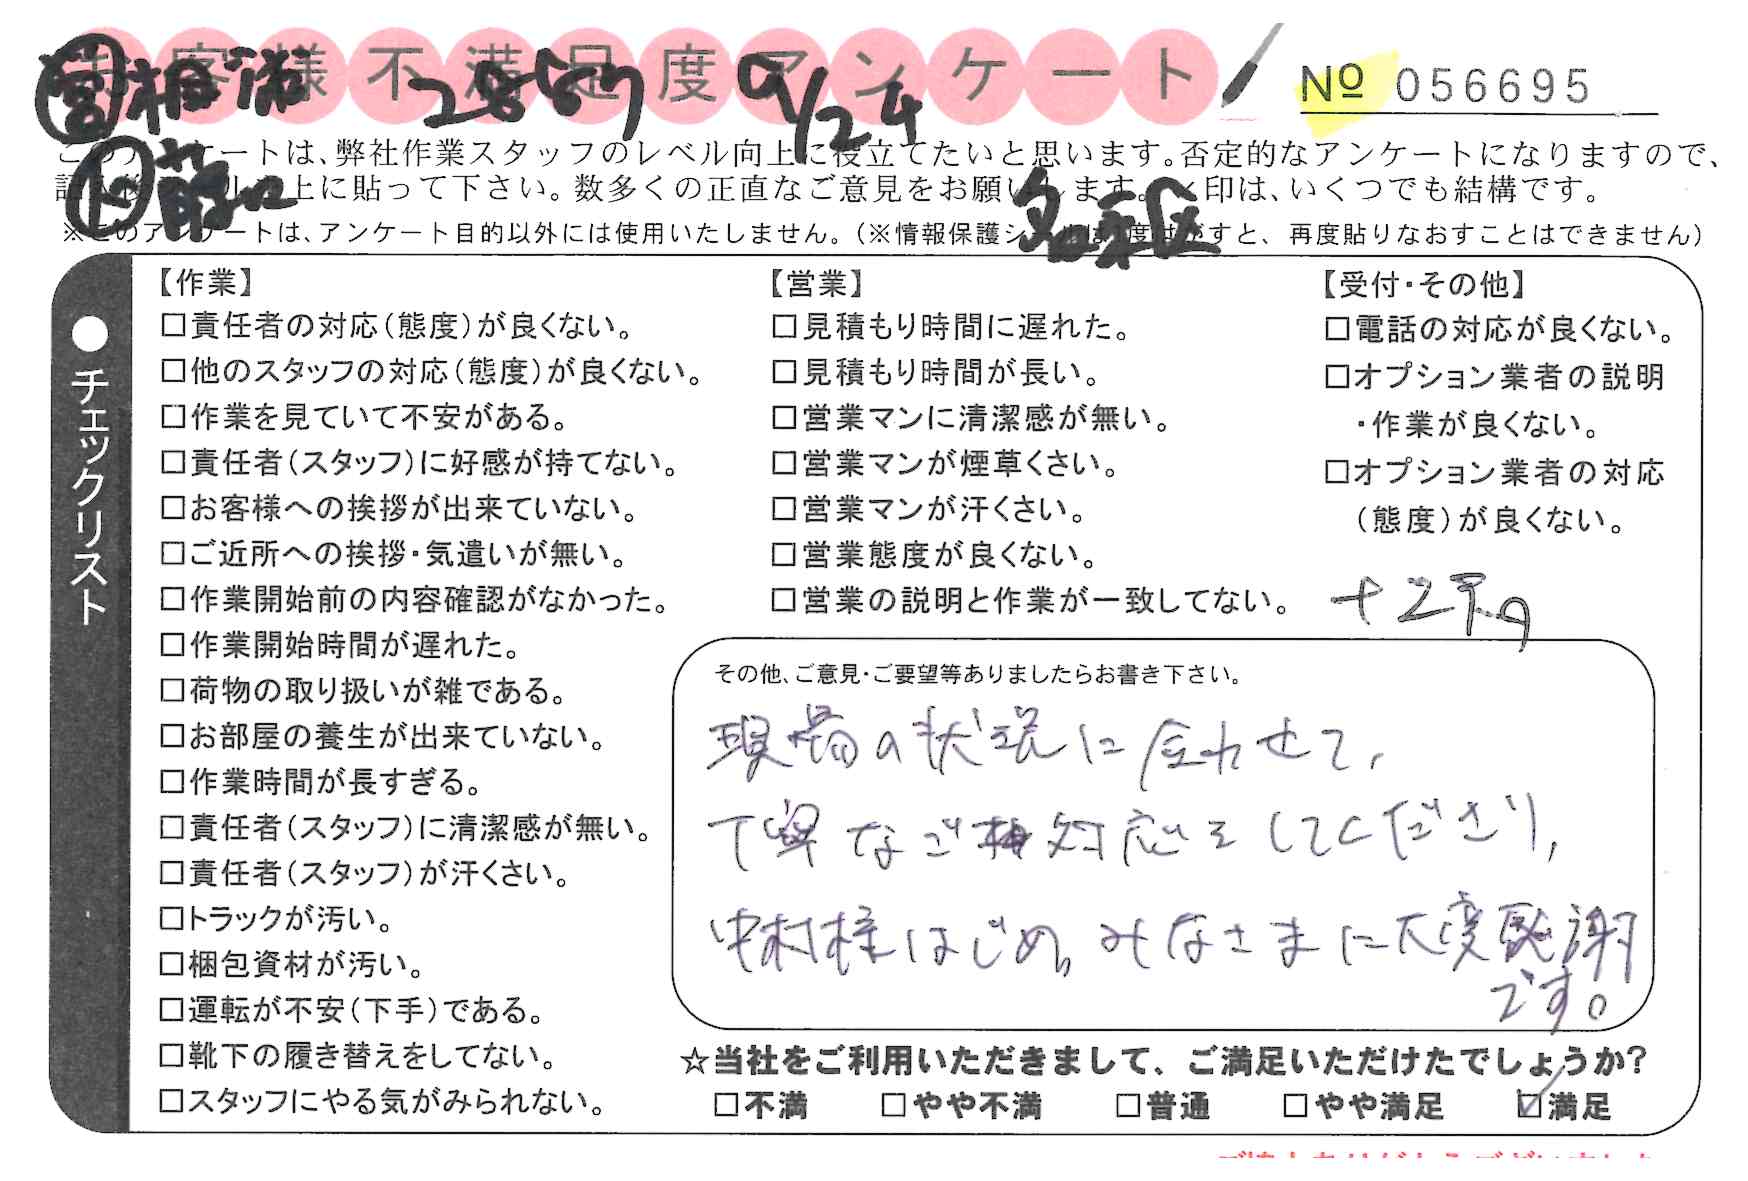 お客様不満足度アンケート
№ 056695
9/24
このアンケートは、弊社作業スタッフのレベル向上に役立てたいと思います。否定的なアンケートになりますので、
上に貼って下さい。数多くの正直なご意見をお願いします。 印は、いくつでも結構です。
※このアンケートは、アンケート目的以外には使用いたしません。(※情報保護シールは1度はがすと、再度貼りなおすことはできません)
●チェックリスト
【作業】
□責任者の対応(態度)が良くない。
□他のスタッフの対応(態度)が良くない。
□作業を見ていて不安がある。
□責任者(スタッフ)に好感が持てない。
□お客様への挨拶が出来ていない。
□ご近所への挨拶・気遣いが無い。
□作業開始前の内容確認がなかった。
□作業開始時間が遅れた。
□荷物の取り扱いが雑である。
□お部屋の養生が出来ていない。
□作業時間が長すぎる。
□責任者(スタッフ)に清潔感が無い。
□責任者(スタッフ)が汗くさい。
□トラックが汚い。
□梱包資材が汚い。
□運転が不安(下手)である。
□靴下の履き替えをしてない。
□スタッフにやる気がみられない。
【営業】
□見積もり時間に遅れた。
□見積もり時間が長い。
□営業マンに清潔感が無い。
□営業マンが煙草くさい。
□営業マンが汗くさい。
□営業態度が良くない。
□営業の説明と作業が一致してない。
【受付・その他】
□電話の対応が良くない。
□オプション業者の説明
・作業が良くない。
□オプション業者の対応
(態度)が良くない。
その他、ご意見・ご要望等ありましたらお書き下さい。
現場の状況に合わせて、
丁寧なご対応をしてくださり、
中村様はじめ、みなさまに大変感謝
です。
☆当社をご利用いただきまして、ご満足いただけたでしょうか?
□不満 □やや不満 □普通 □やや満足 ☑満足